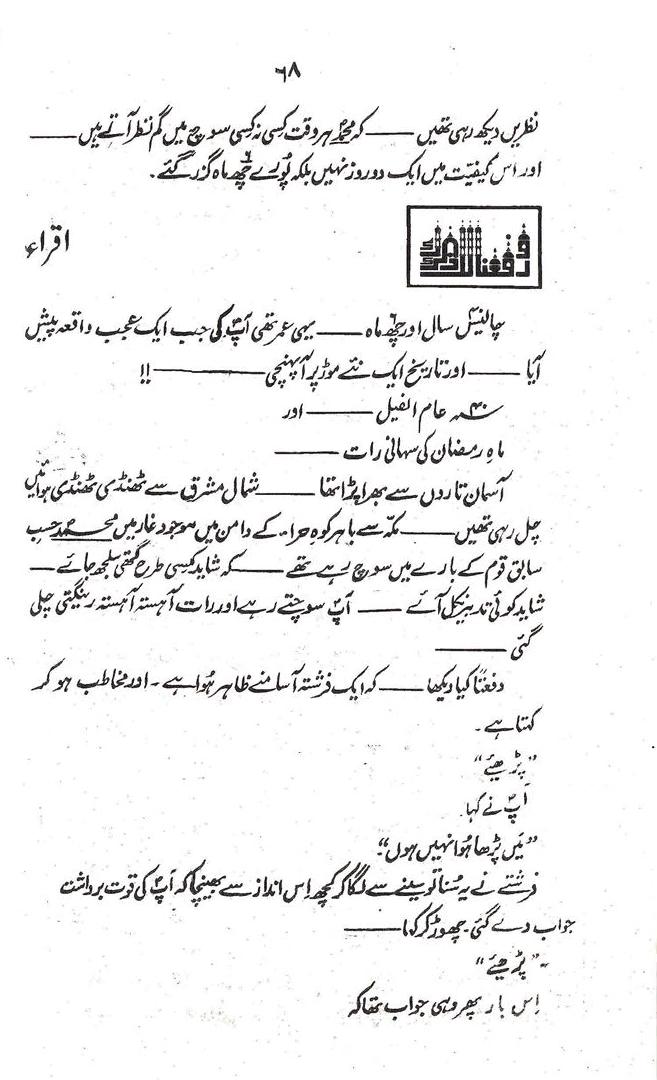 ۶۸
نظریں دیکھ رہی تھیں ——— کہ محمدؐ ہر وقت کسی نہ کسی سوچ میں گم نظر آتے ہیں ———
اور اس کیفیّت میں ایک دو روز نہیں بلکہ پُورے چھ۶ ماہ گزر گئے۔
ورفعنا لک ذکرک
اقراء
چالیس۴۰ سال اور چھ۶ ماہ ——— یہی عمر تھی آپؐ کی جب ایک عجب واقعہ پیش
آیا ——— اور تاریخ ایک نئے موڑ پر آپہنچی ——— !!
۴۰ ؁ عام الفیل ——— اور
ماہِ رمضان کی سہانی رات ———
آسمان تاروں سے بھرا پڑا تھا ——— شمال مشرق سے ٹھنڈی ٹھنڈی ہوائیں
چل رہی تھیں ——— مکّہ سے باہر کوہِ حراء کے دامن میں موجود غار میں محمدؐ حسبِ
سابق قوم کے بارے میں سوچ رہے تھے ——— کہ شاید کسی طرح گتھی سلجھ جائے —
شاید کوئی تدبیر نکل آئے —— آپؐ سوچتے رہے اور رات آہستہ آہستہ رینگتی چلی
گئی ———
دفعتاً کیا دیکھا —— کہ ایک فرشتہ آسامنے ظاہر ہُوا ہے ۔ اور مخاطب ہو کر
کہتا ہے ۔
”پڑھیئے“
آپؐ نے کہا
”مَیں پڑھا ہُوا نہیں ہوں“۔
فرشتے نے یہ سُنا تو سینے سے لگا کر کچھ اِس انداز سے بھینچا کہ آپؐ کی قوت برداشت
جواب دے گئی۔ چھوڑ کر کہا ———
۔”پڑھیئے“
اِس بار پھر وہی جواب تھا کہ